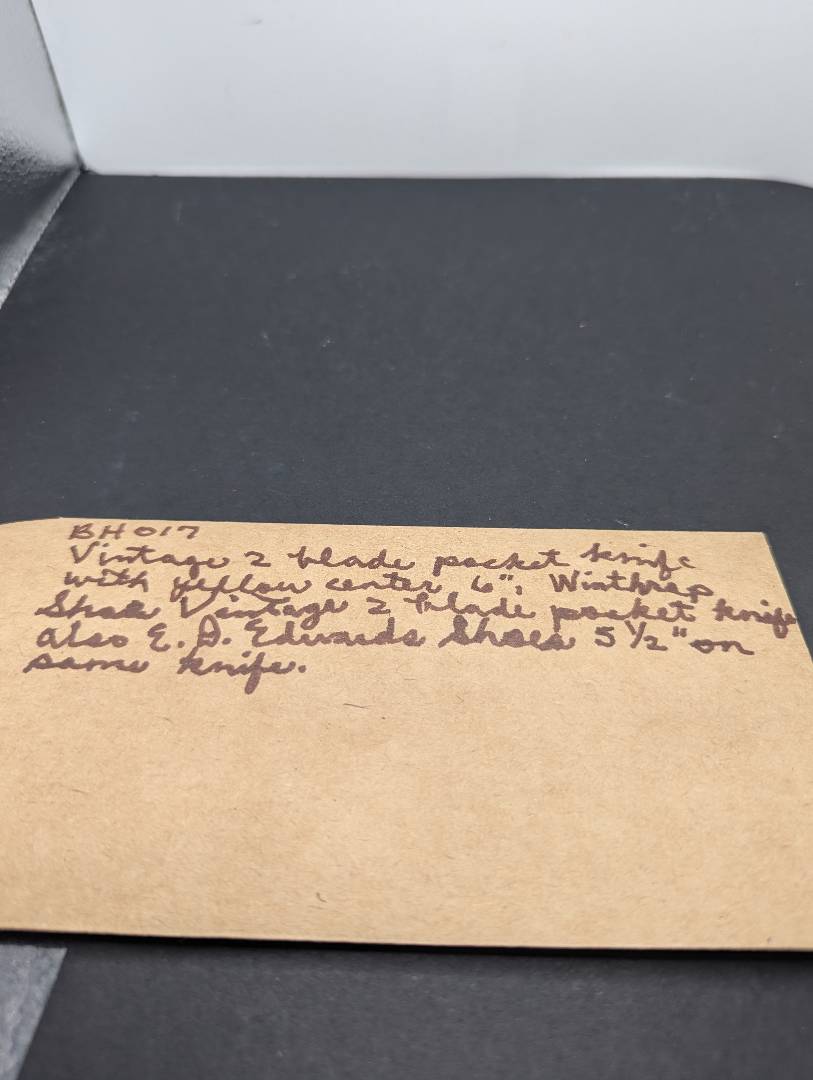 BH017
Vintage 2 blade pocket knife
with yellow center 6", Winthrop
Shoe Vintage 2 blade pocket knife
also E. D. Edwards Shoes 5 1/2" on
same knife.